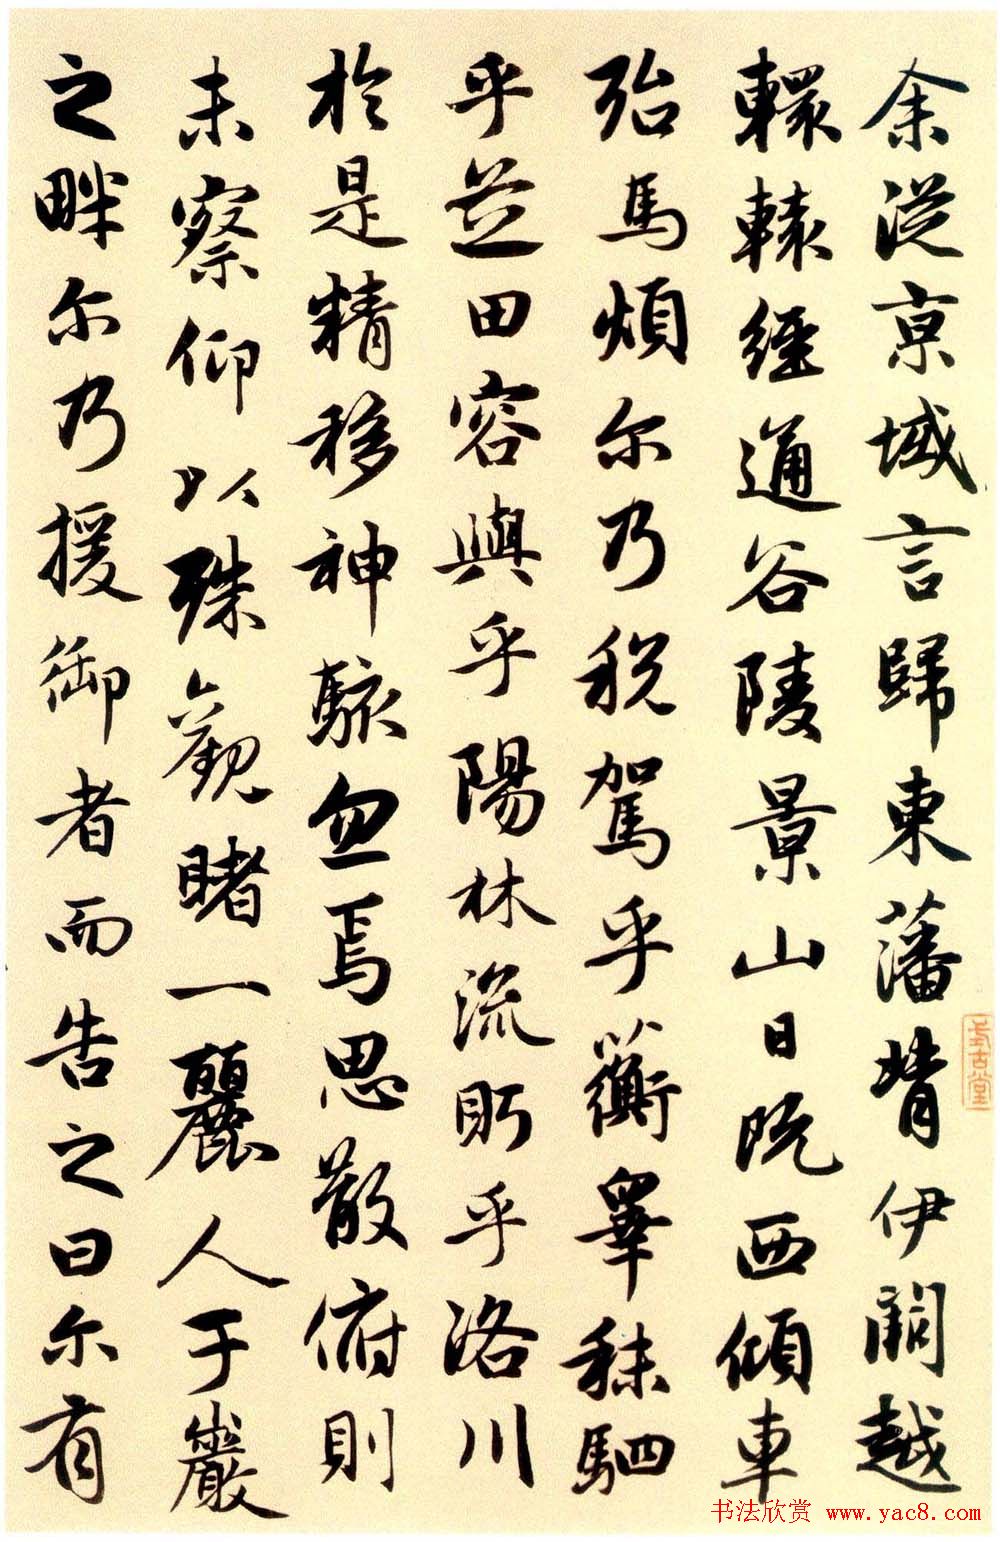 余從京域言歸東藩背伊闕越
轘轅經通谷陵景山日既西傾車
殆馬煩尔乃稅駕乎蘅皋秣駟
乎芝田容與乎陽林流眄乎洛川
於是精移神駭忽焉思散俯則
未察仰以殊觀睹一麗人于巖
之畔尔乃援御者而告之曰尔有
式古堂
书法欣赏 www.yac8.com